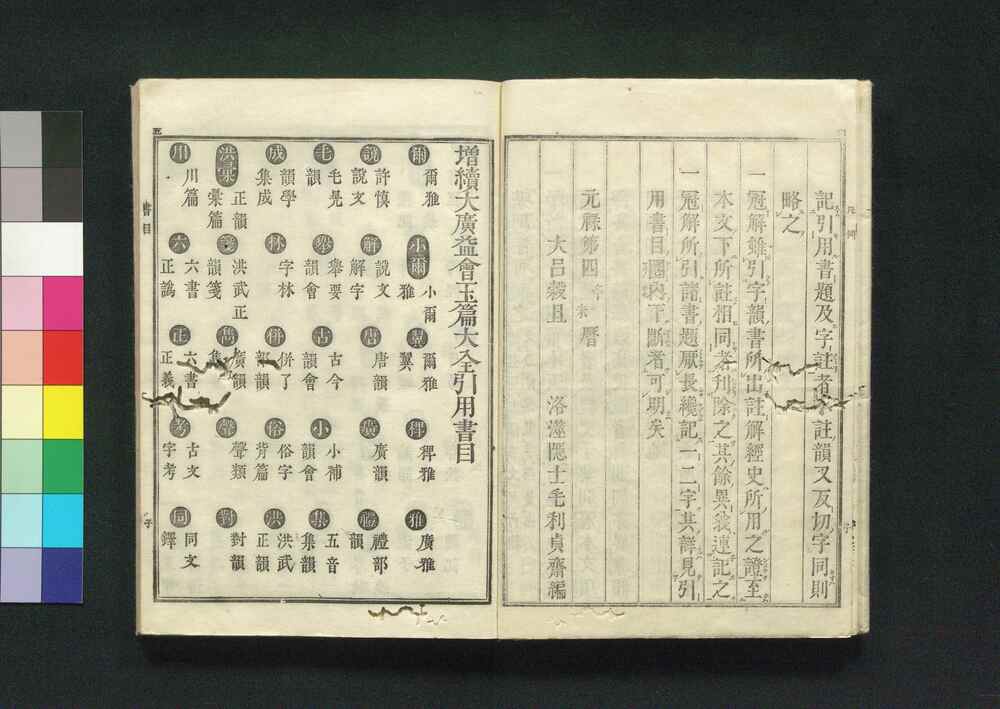 記引用書題及字註者 註韻又反切字同則
略之
一冠解雖引字韻書所出註解經史所用之證至
本文下所註相同者 除之其餘異義連記之
一冠解所引諸書題厭長纔記一二字其詳見引
用書目圈内下斷者可期矣
元禄第四 曆
大呂穀旦 洛澨隱士毛利貞齋編
增續大廣益會玉篇大全引用書目
爾 爾雅 小爾 小爾雅 翼 爾雅翼 稗 稗雅 雅 廣雅
說 許慎說文 解 說文解字 唐 唐韻 廣 廣韻 禮 禮部韻
毛 毛晃韻 擧 擧要韻會 古 古今韻會 小 小補韻會 集 五音集韻
成 韻學集成 林 字林 併 併了部韻 俗 俗字背篇 洪 洪武正韻
洪彙 正韻彙篇 箋 洪武正韻箋 廣韻 聲 聲類 對 對韻
川 川篇 六 六書正譌 正 六書正義 考 古文字考 同 同文鐸
五
書目